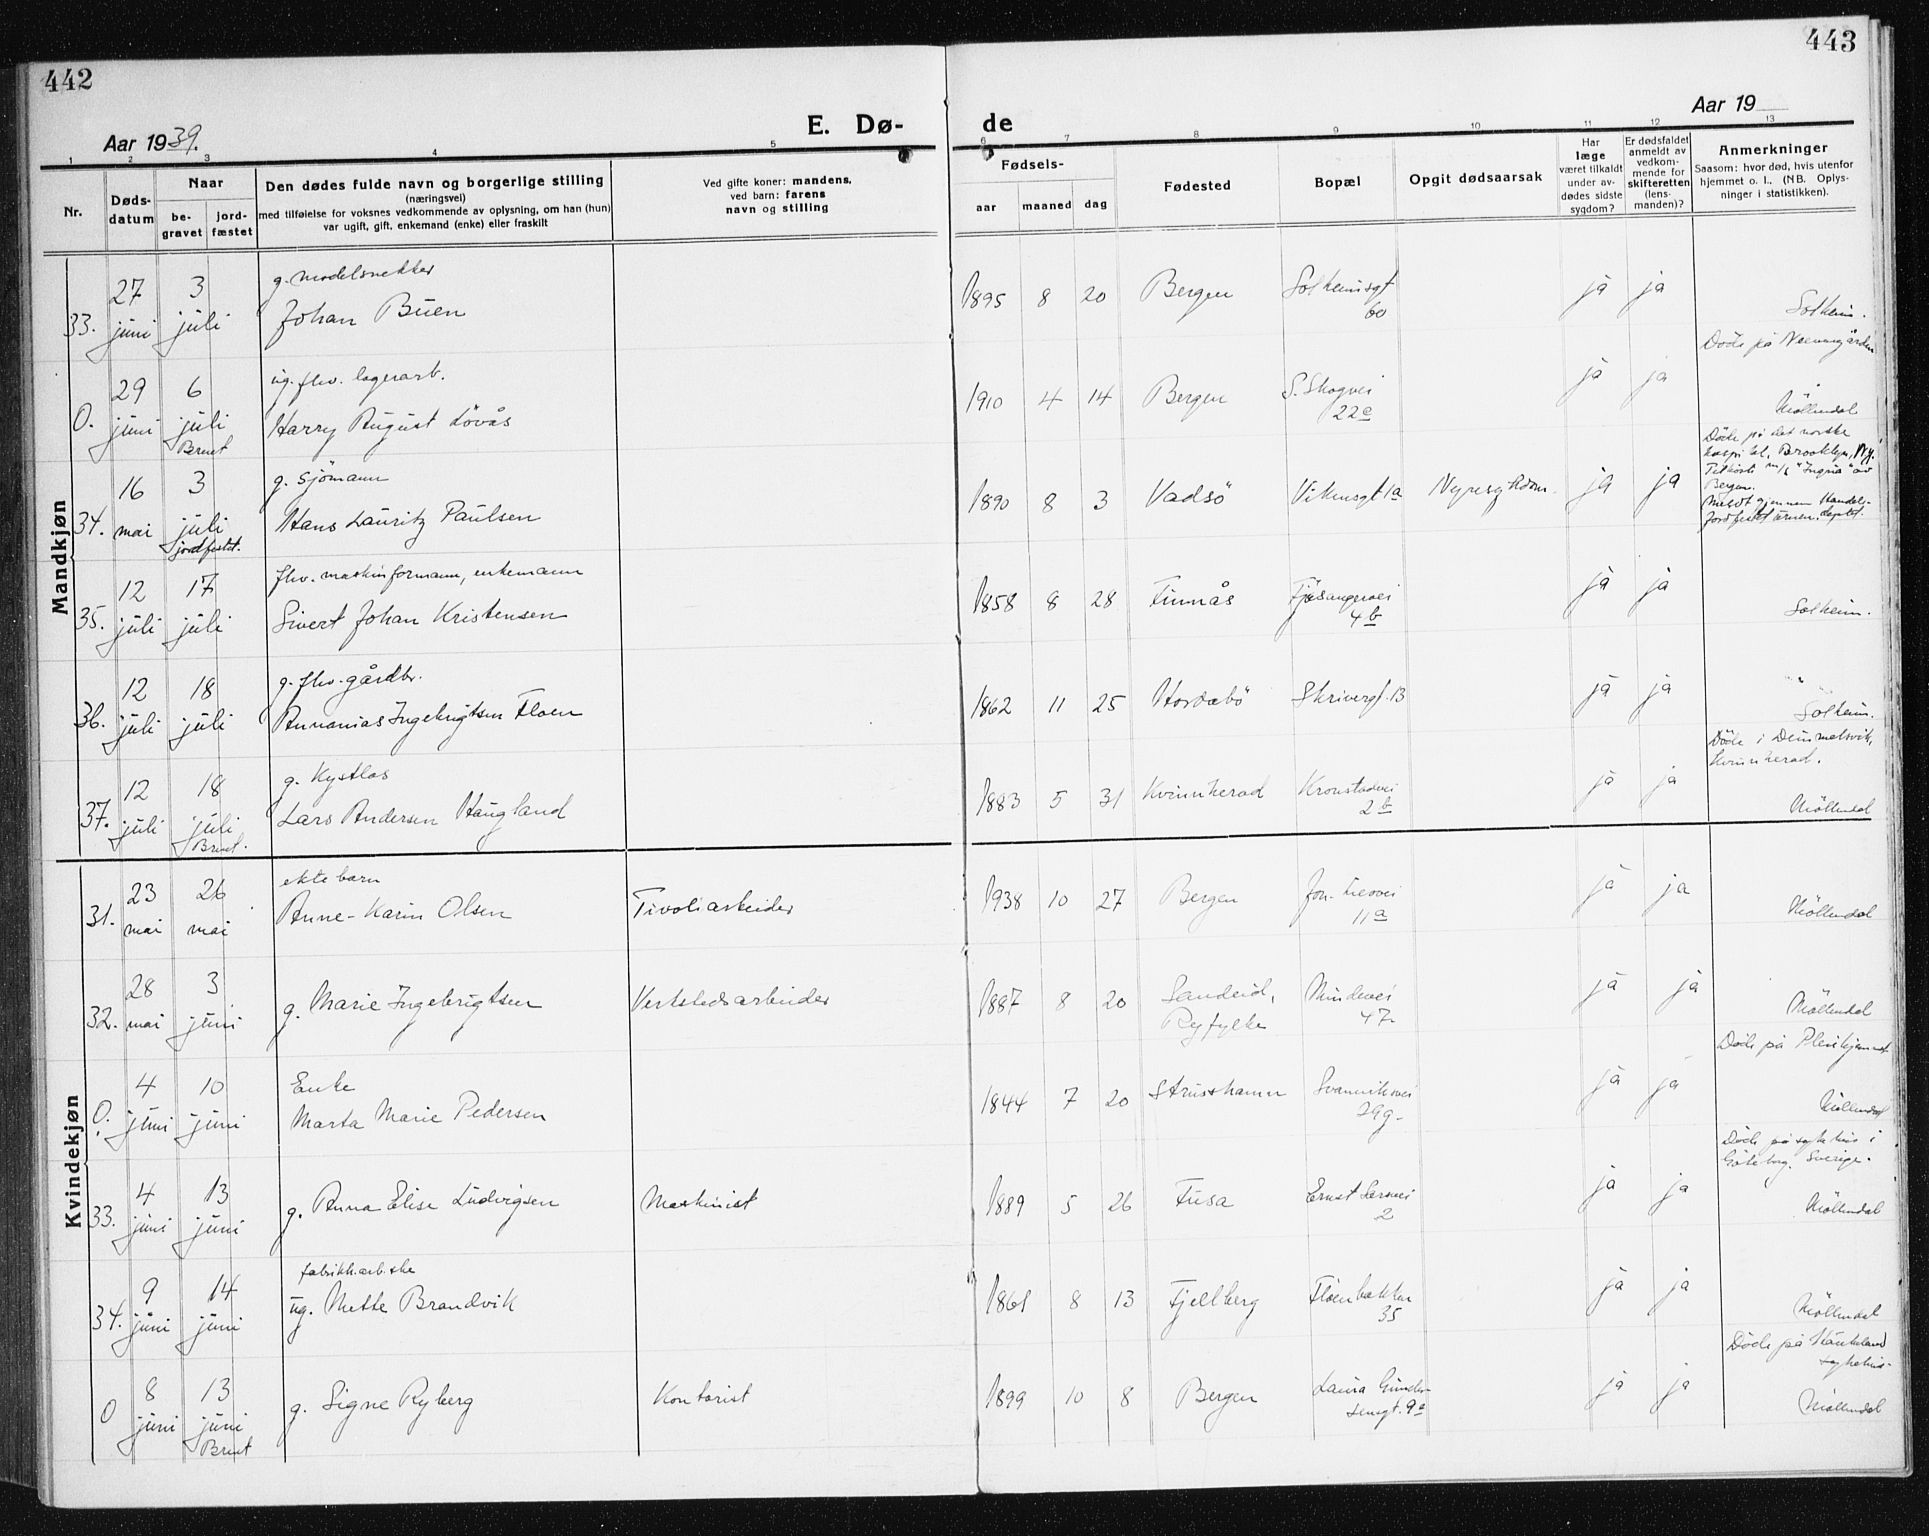 442
443
Aar 1939.
E. Dø-
de
Aar 19
1 2 3 4 5 6 7 8 9 10 11 12 13
Nr.
Døds-
datum
Naar
be-
gravet
jord-
fæstet
Den dødes fulde navn og borgerlige stilling
(næringsvei)
med tilføielse for voksnes vedkommende av oplysning, om han (hun)
var ugift, gift, enkemand (enke) eller fraskilt
Ved gifte koner: mandens,
ved barn: farens
navn og stilling
Fødsels-
aar maaned dag
Fødested
Bopæl
Opgit dødsaarsak
Har
læge
været tilkaldt
under av-
dødes sidste
sygdom?
Er dødsfaldet
anmeldt av
vedkom-
mende for
skifteretten
(lens-
manden)?
Anmerkninger
Saasom: hvor død, hvis utenfor
hjemmet o. l., (NB. Oplys-
ninger i statistikken).
Mandkjøn
27 3 g. modelsnekker
33. juni juli Johan Buen
1895 8 20 Bergen Solheimsgt
60
ja ja
Solheim.
29 6 ug. fhv. lagerarb.
0. juni juli Harry August Løvås
Brent
1910 4 14 Bergen S. Skogvei
22a
ja ja
Døde på
Møllendal
16 3 g. sjømann
34. mai juli Hans Lauritz Paulsen
jordfestet.
1890 8 3 Vadsø Vikensgt 1a
ja ja
Døde på det norske
hospital, Brooklyn, N.y.
Tilhørte m/s "Ingria" av
Bergen.
Meldt gjennem Handels-
Jordfestet urnen. deptet.
12 17 fhv. maskinformann, enkemann
35. juli juli Sivert Johan Kristensen
1858 8 28 Finnås Fjøsangervei
4b
ja ja
Solheim.
12 18 g. fhv. gårdbr.
36. juli juli Annanias Ingebrigtsen Floen
1862 11 25 Hordabø Skrivergt. 13
ja ja
Solheim.
12 18 g. Kystlos
37. juli juli Lars Andersen Haugland
Brent.
1883 5 31 Kvinnherad Kronstadvei
2b
ja ja
Døde i
Kvinnherad.
Møllendal
Kvindekjøn
23 26 ekte barn
31. mai mai Anne-Karin Olsen
Tivoliarbeider
1938 10 27 Bergen
11a
ja ja
Møllendal
28 3
32. mai juni g. Marie Ingebrigtsen
Verkstedsarbeider
1887 8 20 Sandeid, Mindevei
Ryfylke 47
ja ja
Møllendal
4 10 Enke
0. juni juni Marta Marie Pedersen
1844 7 20 Strusshamn Svanevikvei
29g
ja ja
Døde på Pleiehjemmet
Møllendal
4 13
33. juni juni g. Anna Elise Ludvigsen
Maskinist
1889 5 26 Fusa
2
ja ja
Døde på sykehus i
Göteborg, Sverige.
Møllendal
9 14 fabrikkarb.ske
34. juni juni ug. Mette Brandvik
1861 8 13 Fjellberg Fløenbakken
35
ja ja
Møllendal
8 13
0 juni juni g. Signe Ryberg
Brent
Kontorist
1899 10 8 Bergen Laura Gunder-
sensgt. 9a
ja ja
Døde på Haukeland
sykehus.
Møllendal